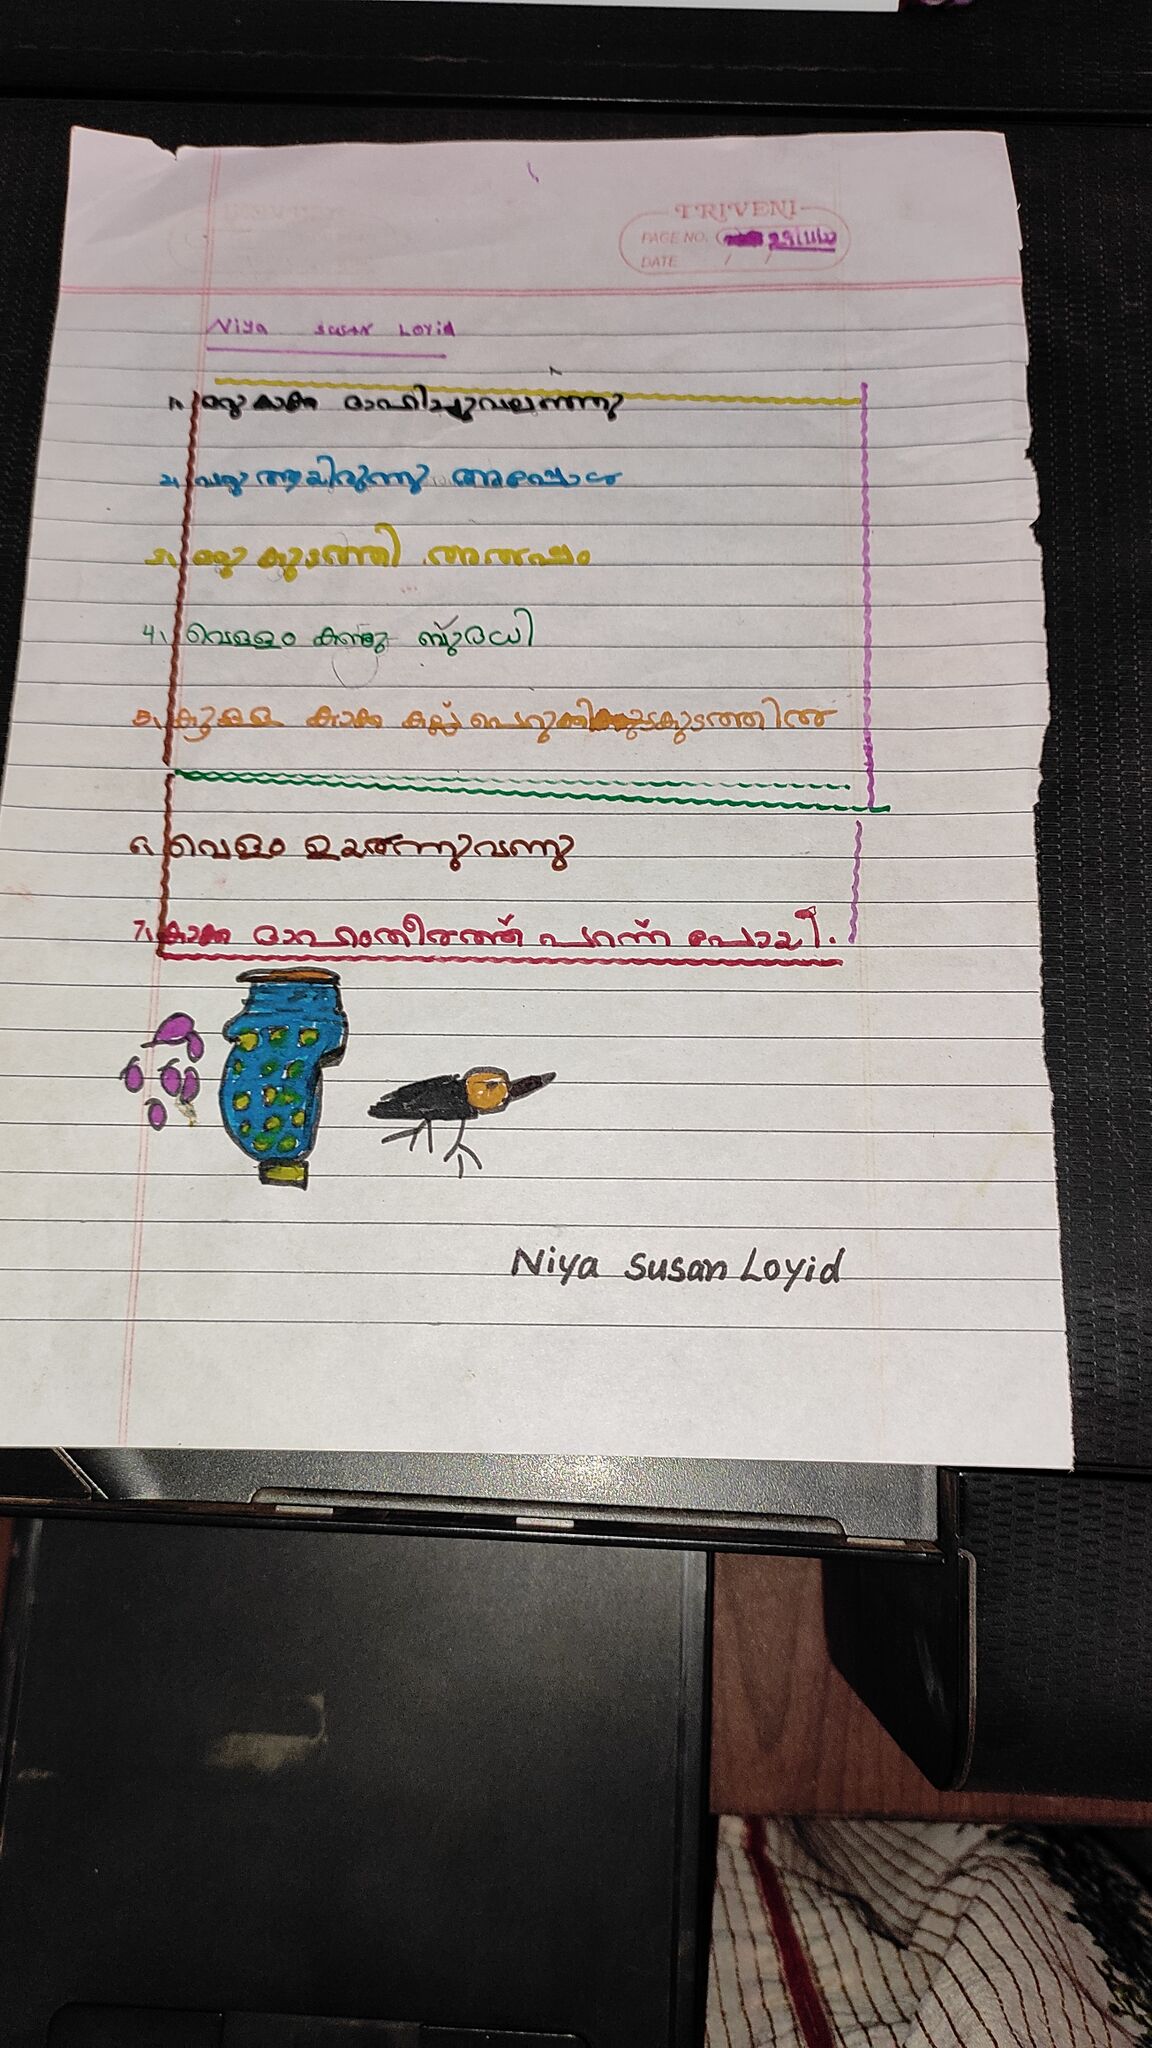 TRIVENI
PAGE NO.
DATE / /
Niya susan Loyid
1. ഒരു കാക്ക ദാഹിച്ചുവലഞ്ഞു
2. വരു ആയിരുന്നു അപ്പോൾ
3. ഒരു കുടത്തി അല്പം
4. വെള്ളം കണ്ടു
5. കാക്ക കല്ല് പെറുക്കി കുടത്തിൽ
6. വെളം ഉയർന്നുവന്നു
7. കാക്ക ദാഹംതീർത്ത് പറന്ന് പോയി.
Niya Susan Loyid